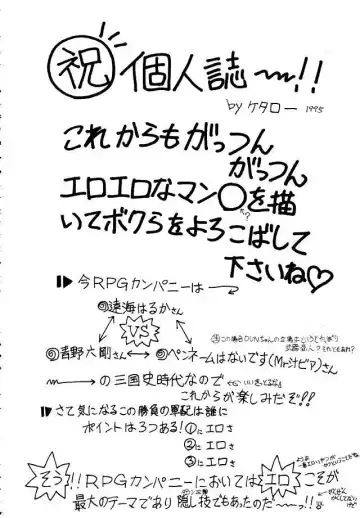 祝 個人誌〜!!
by ケタロー 1995
これからもがっつん
がっつん
エロエロなマン○を描
いてボクらをよろこばして
下さいね♡
今RPGカンパニーは〜
遠海はるかさん
VS
青野六剛さん ペンネームはないです(Mr.汁ビア)さん
〜の三国史時代なので
これからが楽しみだぞ!!
さて気になるこの勝負の軍配は誰に
ポイントは3つある! ①にエロさ
②にエロさ
③にエロさ
そう!! RPGカンパニーにおいてはエロこそが
最大のテーマであり隠し技でもあったの〜!!